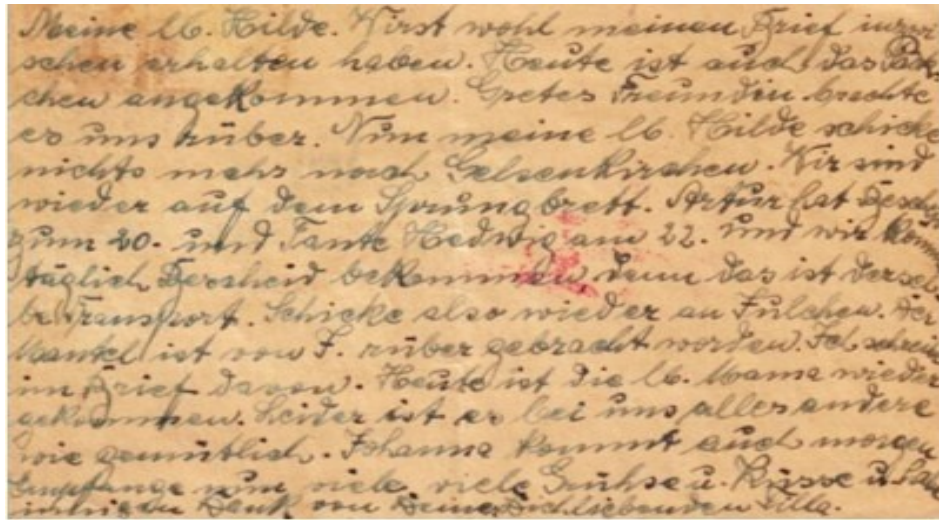 Meine lb. Hilde. Wirst wohl meinen Brief inzwi
schen erhalten haben. Heute ist auch das Päck
chen angekommen. Gretes Freundin brachte
es uns rüber. Nun meine lb. Hilde schicke
nichts mehr nach Gelsenkirchen. Wir sind
wieder auf dem Sprungbrett. Artur hat Besch
zum 20. und Tante Hedwig am 22. und wir könn
täglich Bescheid bekommen, denn das ist dersel
be Transport. Schicke also wieder an Julchen. Der
Mantel ist von J. rüber gebracht worden. Ich schreibe
im Brief davon. Heute ist die lb. Mama wieder
gekommen. Leider ist es bei uns alles andere
wie gemütlich. Johanna kommt auch morgen
Empfange nun viele, viele Grühse u. Küsse u.
innigen Dank von Deiner Dich liebenden Illa.